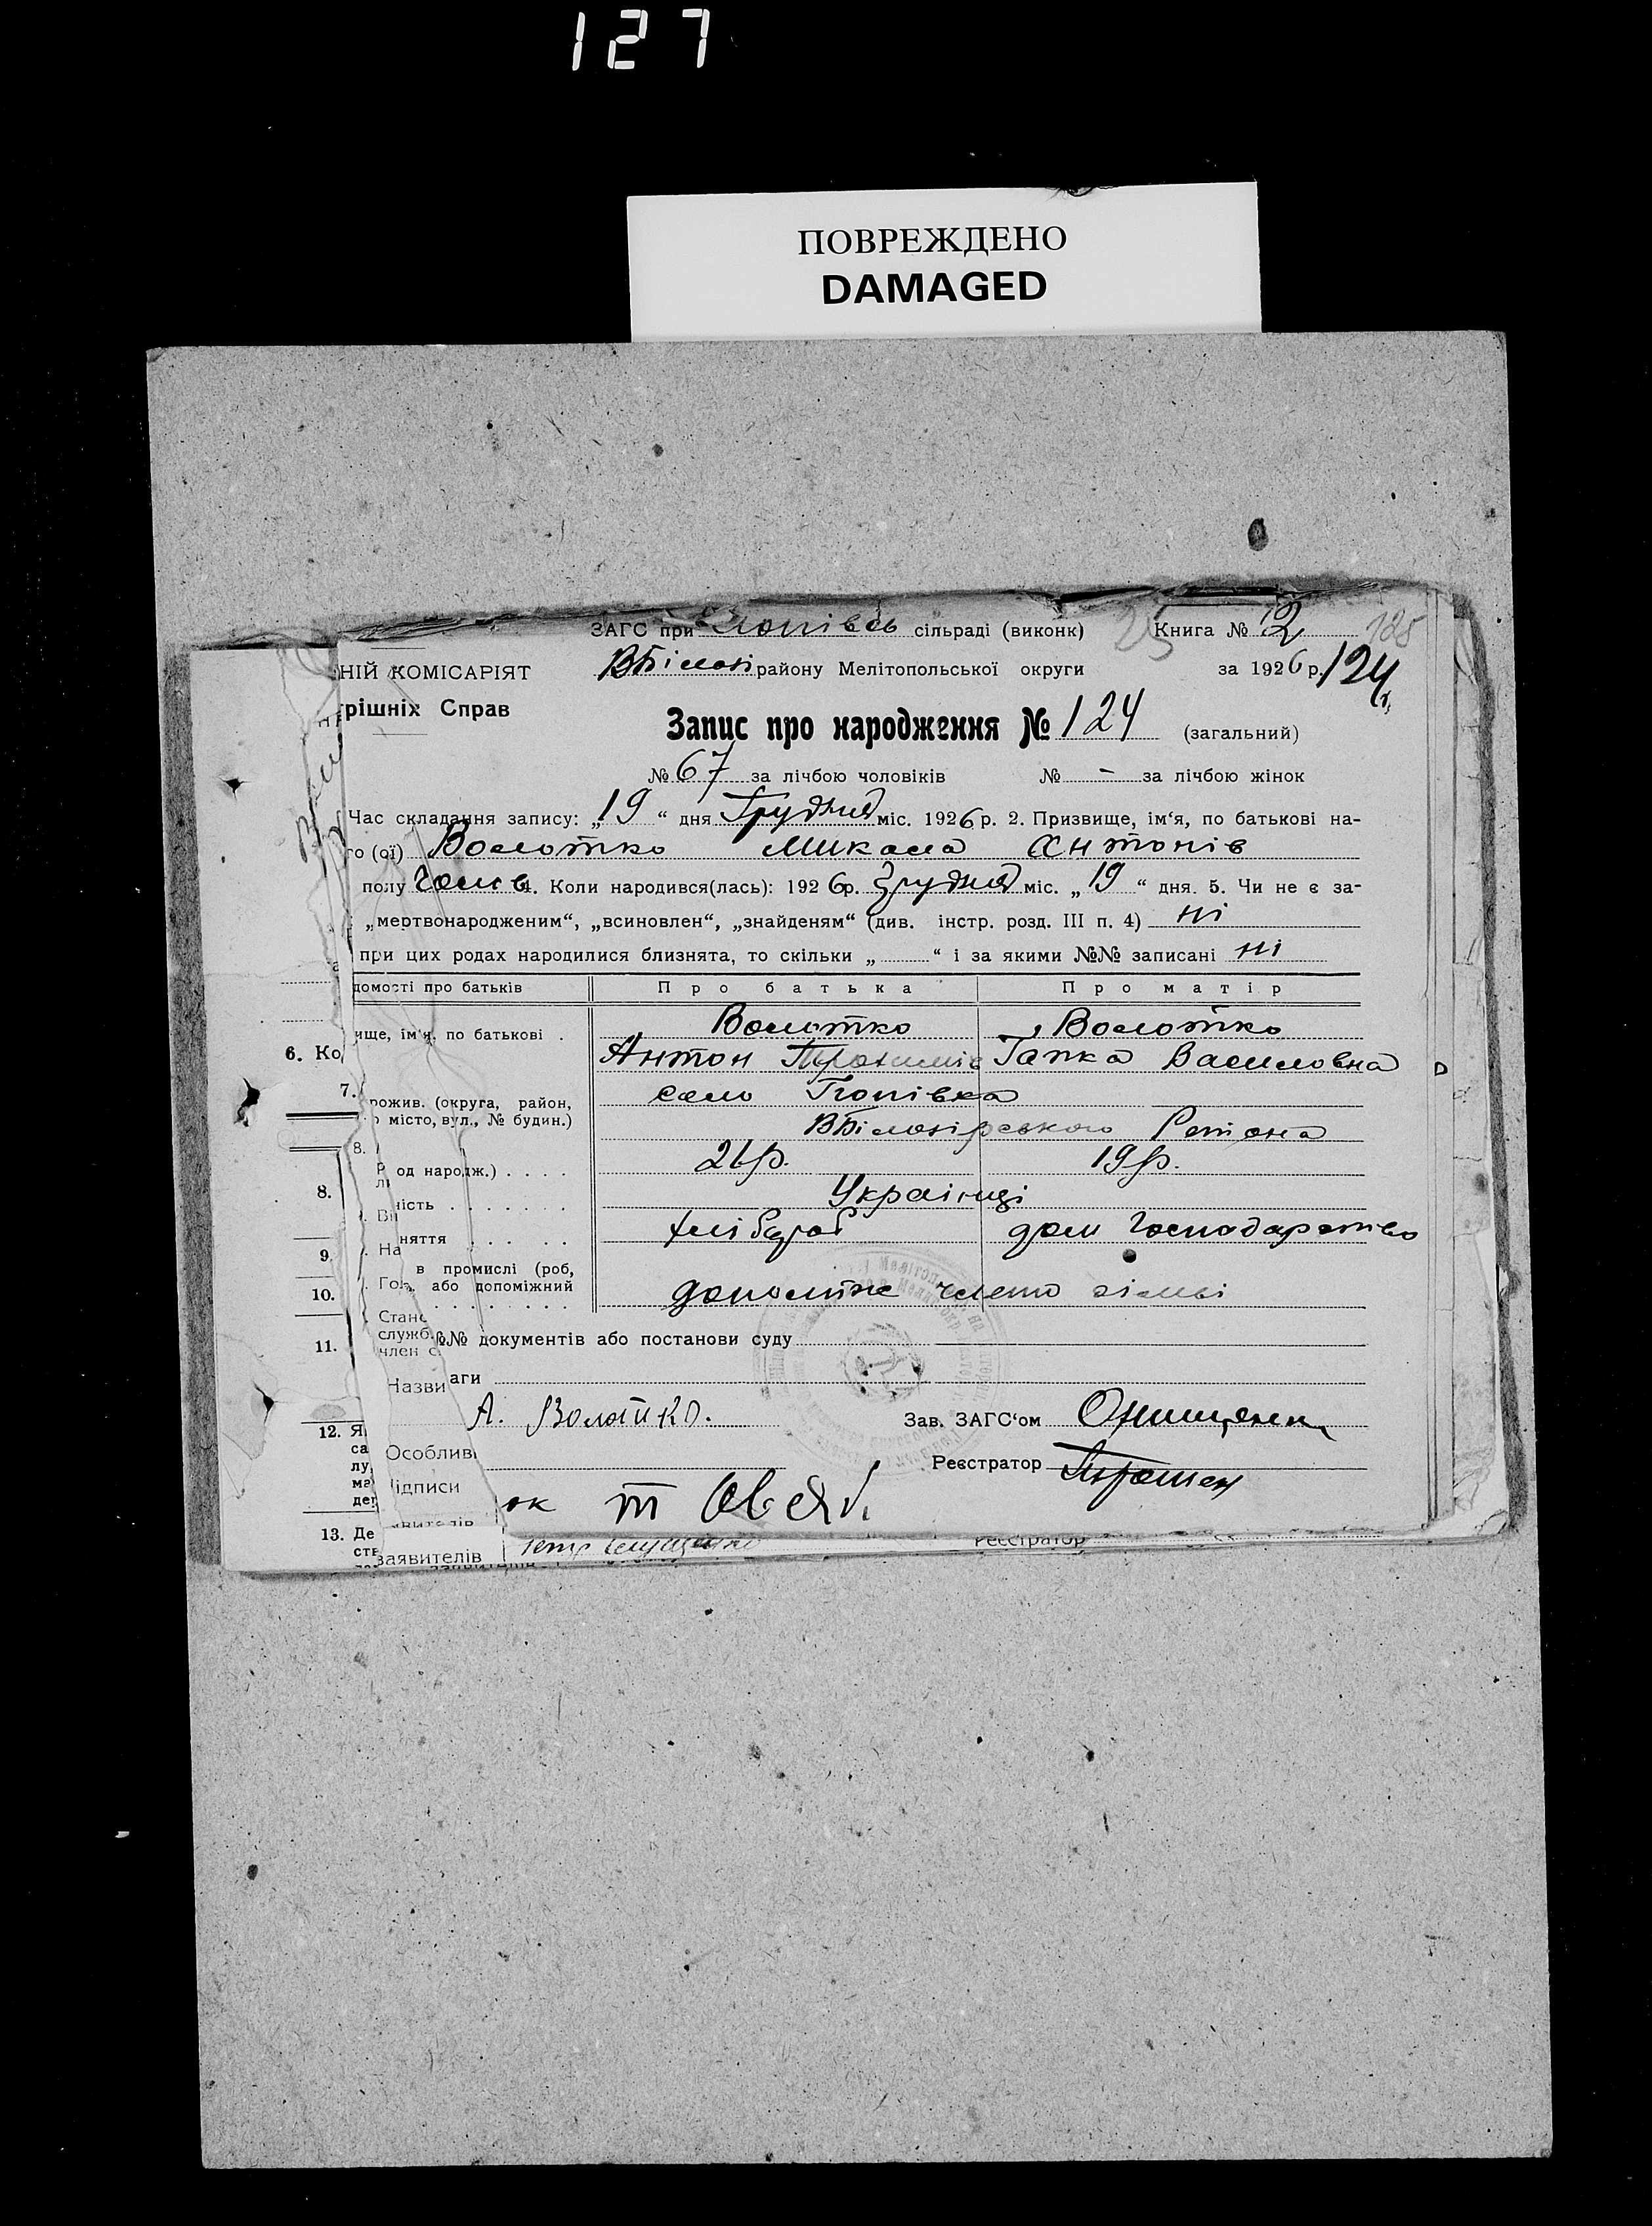 127
ПОВРЕЖДЕНО
DAMAGED
ЗАГС при сільраді (виконк) 25 Книга № 2 125
НІЙ КОМІСАРІЯТ ВБілозі району Мелітопольської округи за 1926 р. 124
рішніх Справ
Запис про народження № 124 (загальний)
№ 67 за лічбою чоловіків № - за лічбою жінок
Час складання запису: „19“ дня Грудня міс. 1926 р. 2. Призвище, ім‘я, по батькові на-
го (ої) Волотко Микола Антонів
полу Чолов. 4. Коли народився(лась): 1926р. Грудня міс. „19“ дня. 5. Чи не є за-
„мертвонародженим“, „всиновлен“, „знайденям“ (див. інстр. розд. III п. 4) ні
при цих родах народилися близнята, то скільки „ “ і за якими №№ записані ні
домості про батьків Про батька Про матір
ище, ім‘я, по батькові . Волотко Волотко
6. Ко Антон Гапка Василовна
7. рожив. (округа, район, село Попівка
місто, вул., № будин.) ВБілозірського Район
8. од народж.) . . . . 26р. 19р.
8. ність . . . . . . . Українці
няття . . . . . хлібороб дом Господарство
9. На
в промислі (роб,
10. Гол. або допоміжний допоміжн члено сімьі
Стано
11. служб. №№ документів або постанови суду
член с
Назви аги
А. Волотко. Зав. ЗАГС‘ом Онищенко
12. Особлив
Реєстратор
ідписи
13. Де
заявителів Реєстратор